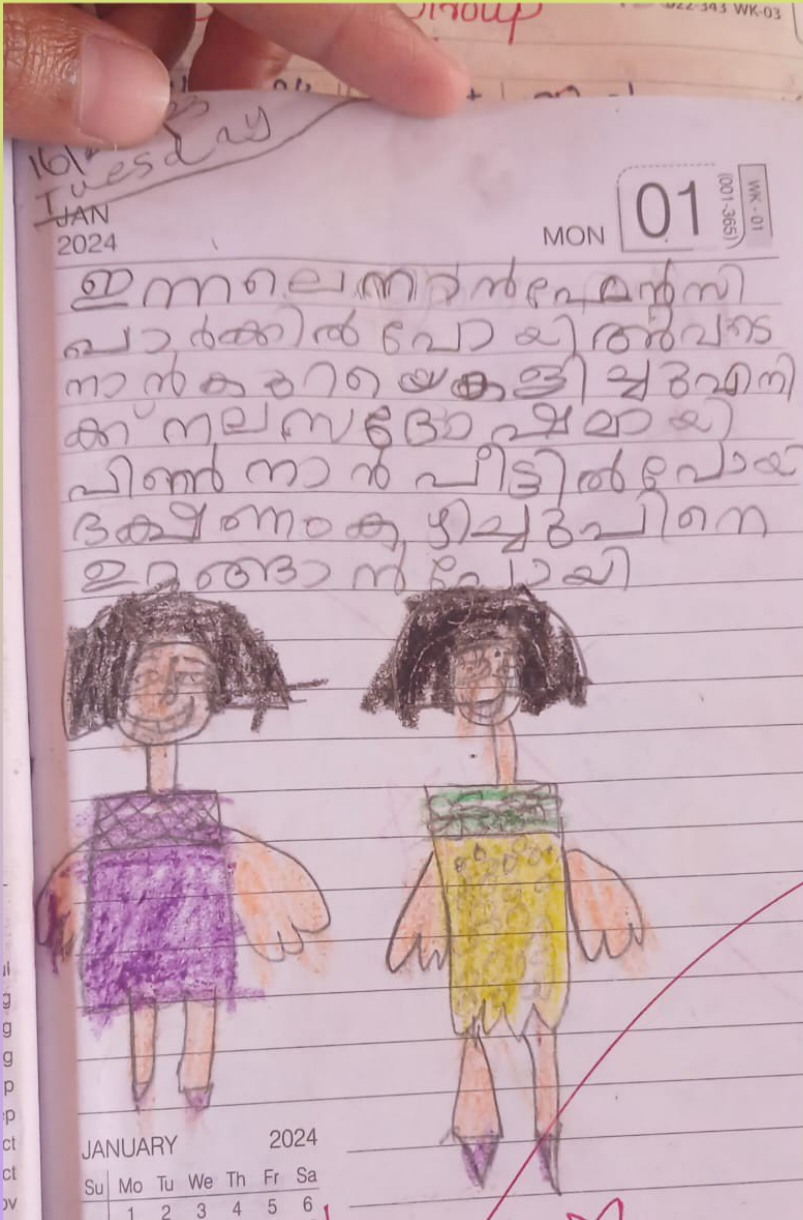 Group
022-343 WK-03
16/
Tuesday
JAN
2024
MON 01 (001-365) WK - 01
ഇന്നലെ ഞാൻ
പാർക്കിൽ പോയി അവടെ
നാൻ കളിച്ചു എനി
ക് നല സന്ദോഷമായി
പിന്ന നാൻ വീട്ടിൽ പോയി
ഭക്ഷണം കഴിച്ചു പിനെ
ഉറങ്ങാൻ പോയി
JANUARY 2024
Su Mo Tu We Th Fr Sa
1 2 3 4 5 6